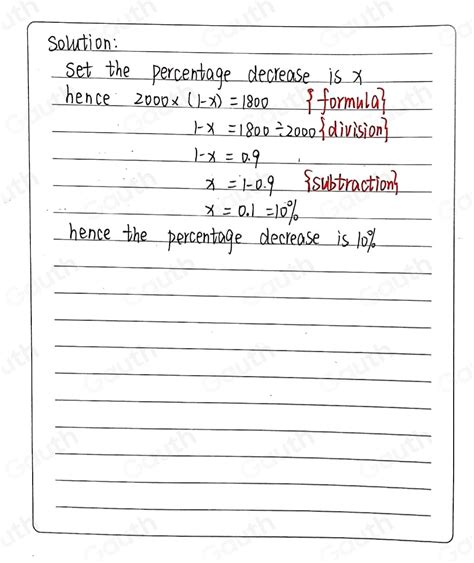 Solution:
Set the percentage decrease is x
hence 2000 × (1-x) = 1800 {formula}
1-x = 1800 ÷ 2000 {division}
1-x = 0.9
x = 1-0.9 {subtraction}
x = 0.1 = 10%
hence the percentage decrease is 10%
Gauth